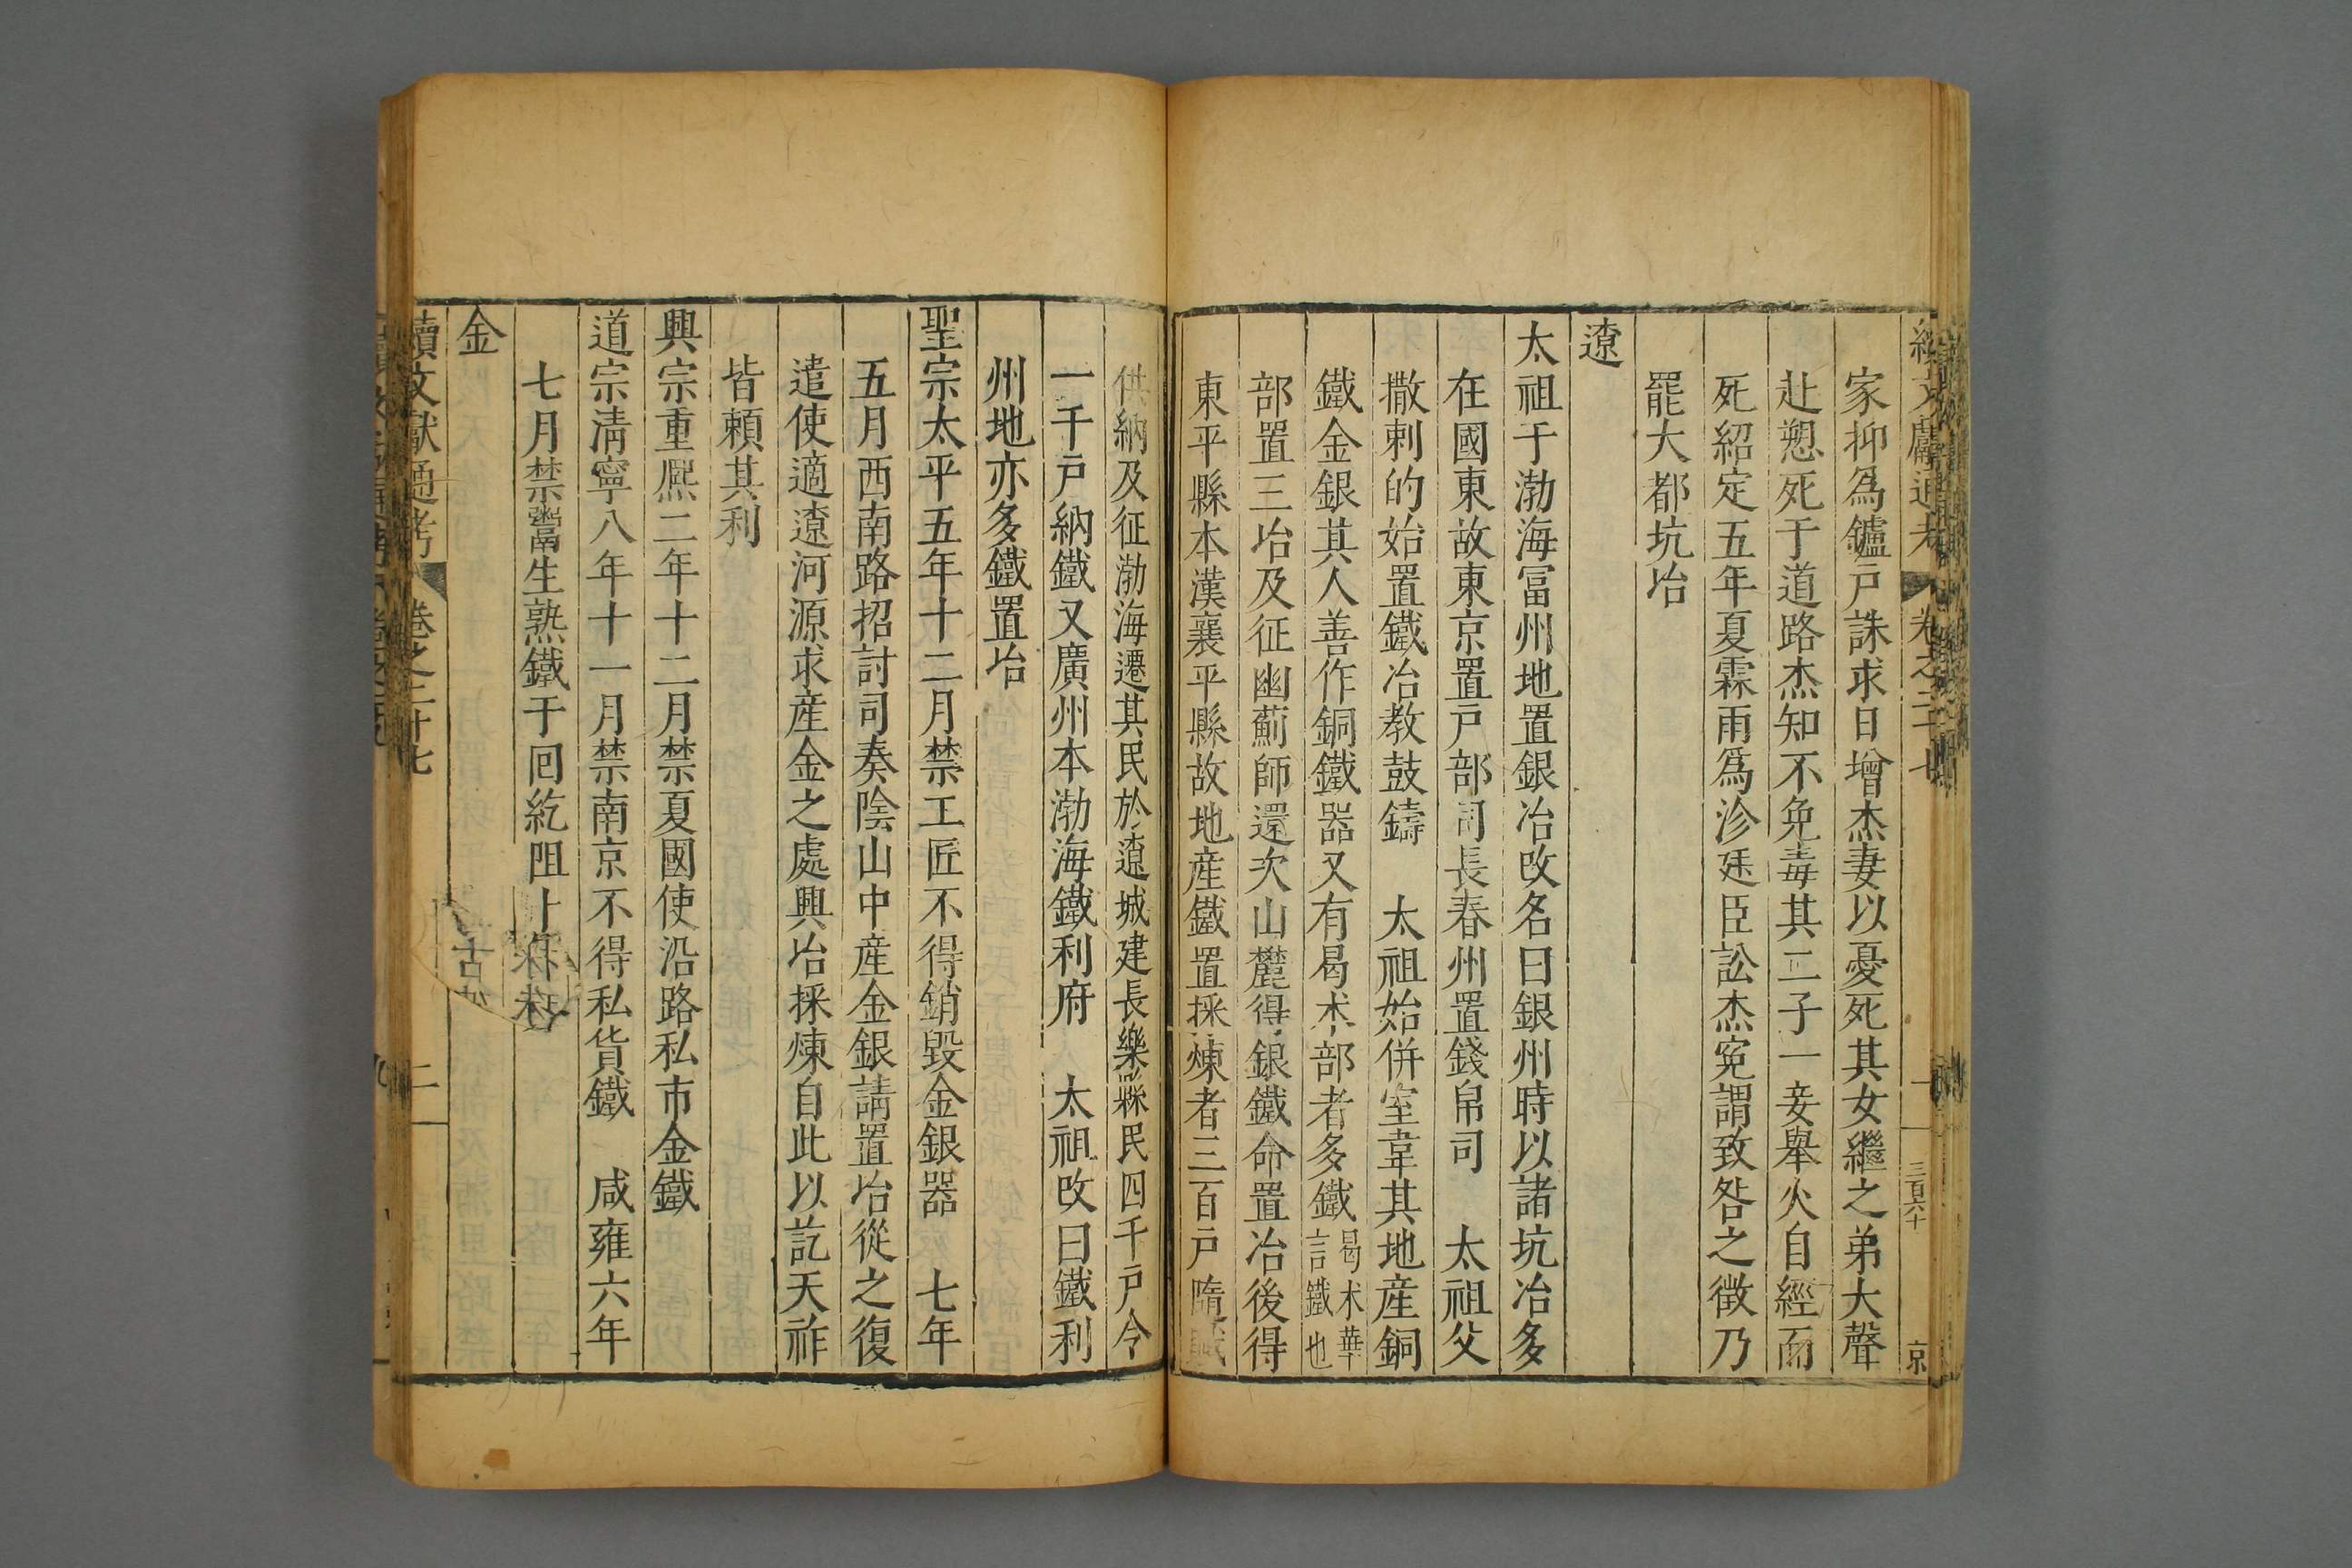 家抑爲鑪戸誅求日增杰妻以憂死其女繼之弟大聲
赴愬死于道路杰知不免毒其二子一妾舉火自經而
死紹定五年夏霖雨爲沴廷臣訟杰寃謂致咎之徵乃
罷大都坑冶
遼
太祖于渤海冨州地置銀冶改名曰銀州時以諸坑冶多
在國東故東京置戸部司長春州置錢帛司　太祖父
撒剌的始置鐵冶教鼓鑄　太祖始併室韋其地産銅
鐵金銀其人善作銅鐵器又有曷朮部者多鐵曷朮華言鐵也
部置三冶及征幽薊師還次山麓得銀鐵命置冶後得
東平縣本漢襄平縣故地産鐵置採煉者三百戸隨賦
供納及征渤海遷其民於遼城建長樂縣民四千戸令
一千戸納鐵又廣州本渤海鐵利府　太祖改曰鐵利
州地亦多鐵置冶
聖宗太平五年十二月禁工匠不得銷毀金銀器　七年
五月西南路招討司奏陰山中産金銀請置冶從之復
遣使適遼河源求産金之處興冶採煉自此以訖天祚
皆頼其利
興宗重熈二年十二月禁夏國使沿路私市金鐵
道宗清寧八年十一月禁南京不得私貨鐵　咸雍六年
七月禁鬻生熟鐵于回紇阻卜
金
續文獻通考　卷之二十七　二